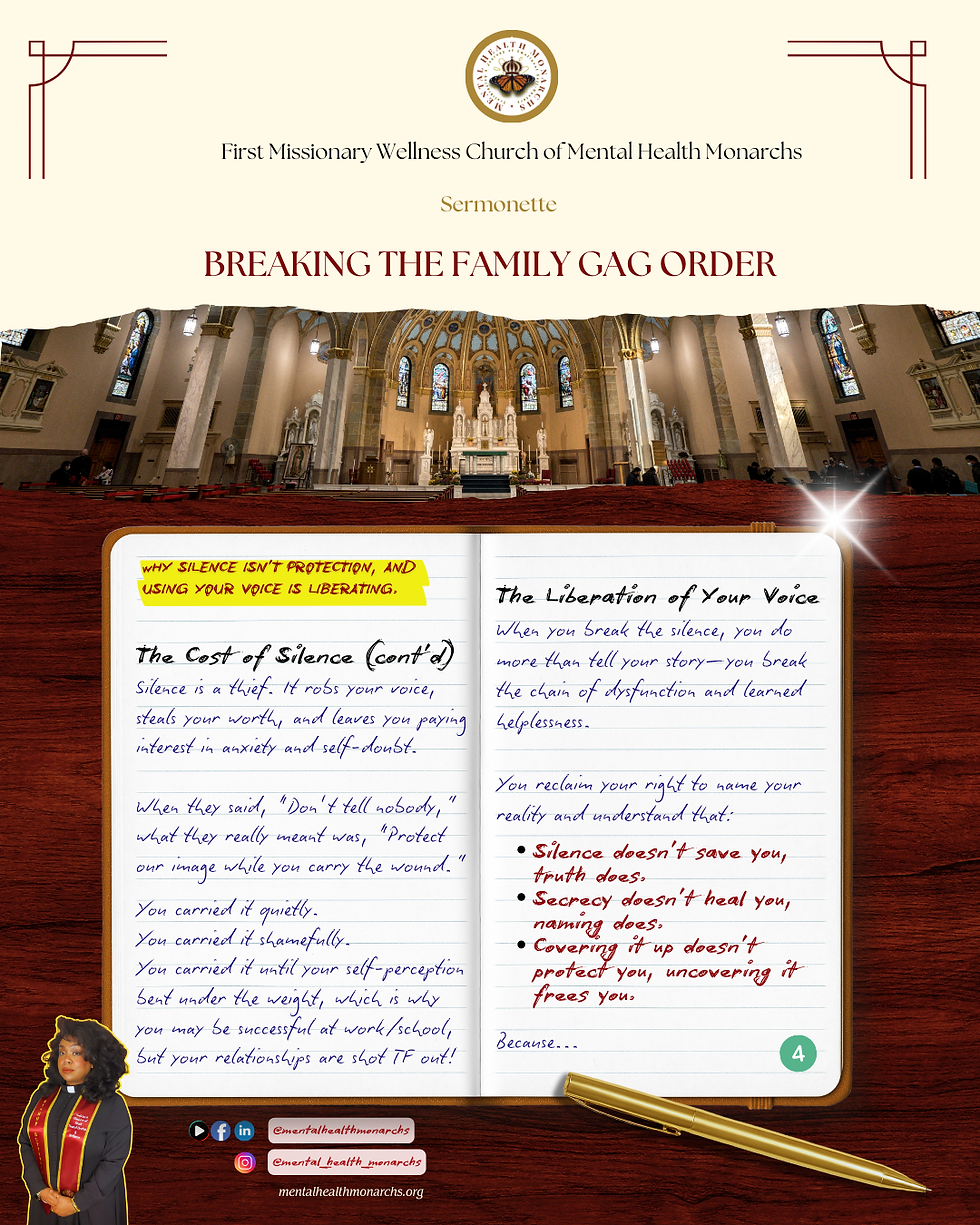 MENTAL HEALTH MONARCHS
First Missionary Wellness Church of Mental Health Monarchs
Sermonette
BREAKING THE FAMILY GAG ORDER
WHY SILENCE ISN'T PROTECTION, AND
USING YOUR VOICE IS LIBERATING.
The Cost of Silence (cont'd)
Silence is a thief. It robs your voice,
steals your worth, and leaves you paying
interest in anxiety and self-doubt.
When they said, "Don't tell nobody,"
what they really meant was, "Protect
our image while you carry the wound."
You carried it quietly.
You carried it shamefully.
You carried it until your self-perception
bent under the weight, which is why
you may be successful at work/school,
but your relationships are shot TF out!
The Liberation of Your Voice
When you break the silence, you do
more than tell your story—you break
the chain of dysfunction and learned
helplessness.
You reclaim your right to name your
reality and understand that:
• Silence doesn't save you,
truth does.
• Secrecy doesn't heal you,
naming does.
• Covering it up doesn't
protect you, uncovering it
frees you.
Because...
4
@mentalhealthmonarchs
@mental_health_monarchs
mentalhealthmonarchs.org